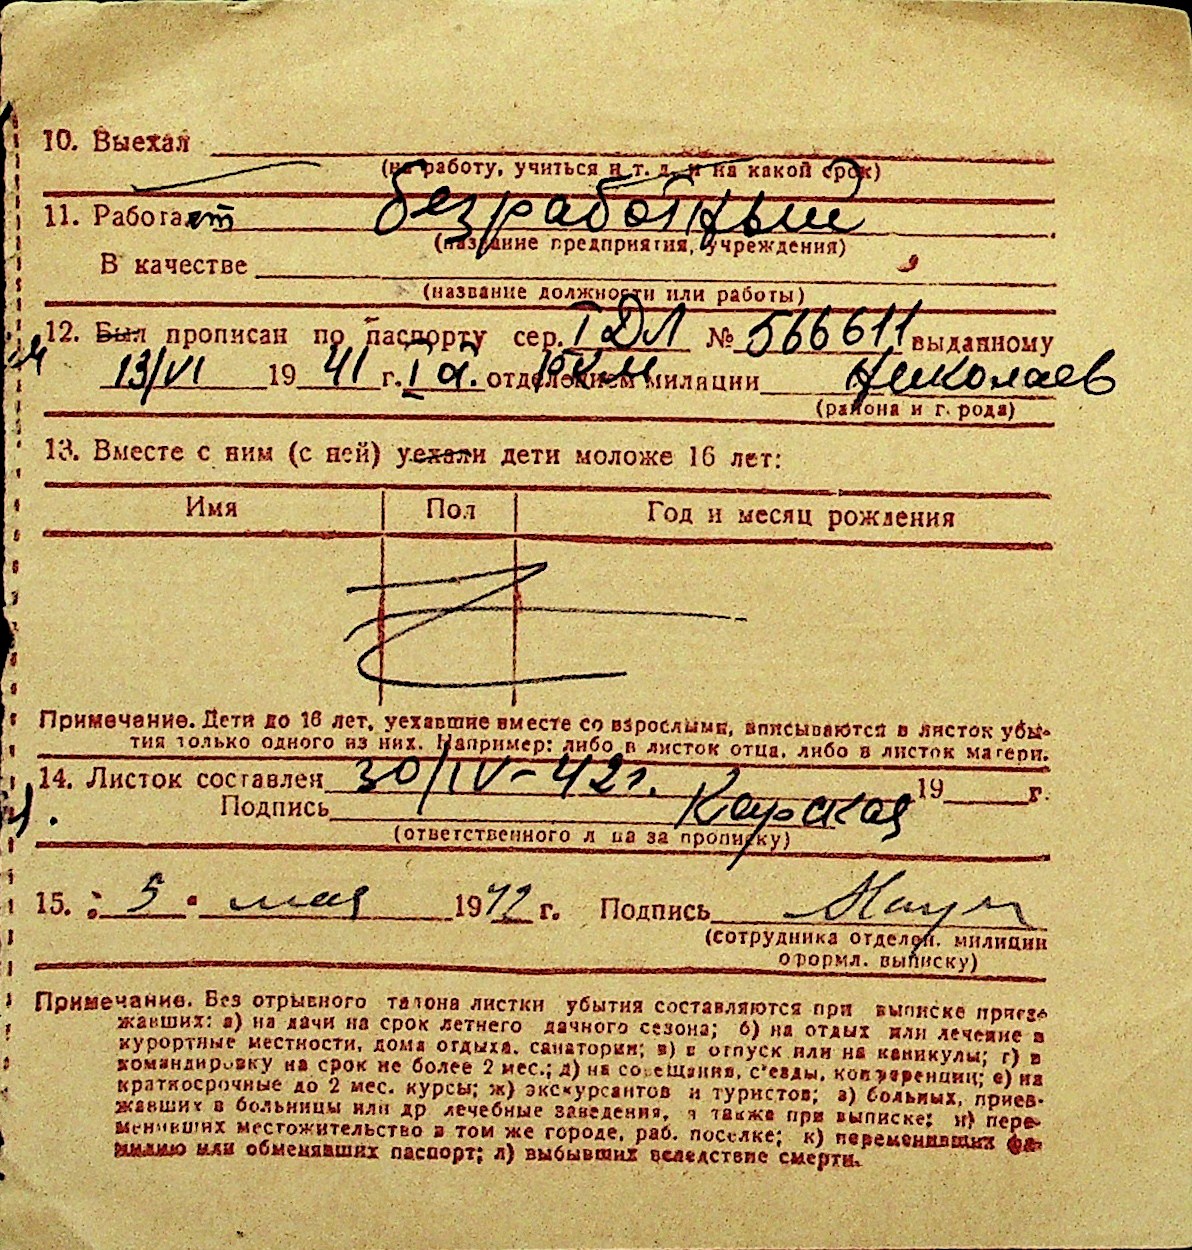 10. Выехал
(на работу, учиться и т. д. и на какой срок)
11. Работает безработный
(название предприятия, учреждения)
В качестве
(название должности или работы)
12. Был прописан по паспорту сер. I ДЛ № 566611 выданному
13/VI 1941 г. I отделением милиции Николаев
(района и города)
13. Вместе с ним (с ней) уехали дети моложе 16 лет:
Имя Пол Год и месяц рождения
Примечание. Дети до 16 лет, уехавшие вместе со взрослыми, вписываются в листок убы-
тия только одного из них. Например: либо в листок отца, либо в листок матери.
14. Листок составлен 30/IV-42г. 19 г.
Подпись Карская
(ответственного лица за прописку)
15. 5 мая 1942 г. Подпись
(сотрудника отделен. милиции
оформл. выписку)
Примечание. Без отрывного талона листки убытия составляются при выписке приез-
жавших: а) на дачи на срок летнего дачного сезона; б) на отдых или лечение в
курортные местности, дома отдыха, санатории; в) в отпуск или на каникулы; г) в
командировку на срок не более 2 мес.; д) на совещания, с'езды, конференции; е) на
краткосрочные до 2 мес. курсы; ж) экскурсантов и туристов; з) больных, приез-
жавших в больницы или др лечебные заведения, а также при выписке: и) пере-
менивших местожительство в том же городе, раб. поселке; к) переменивших фа-
милию или обменявших паспорт; л) выбывших вследствие смерти.